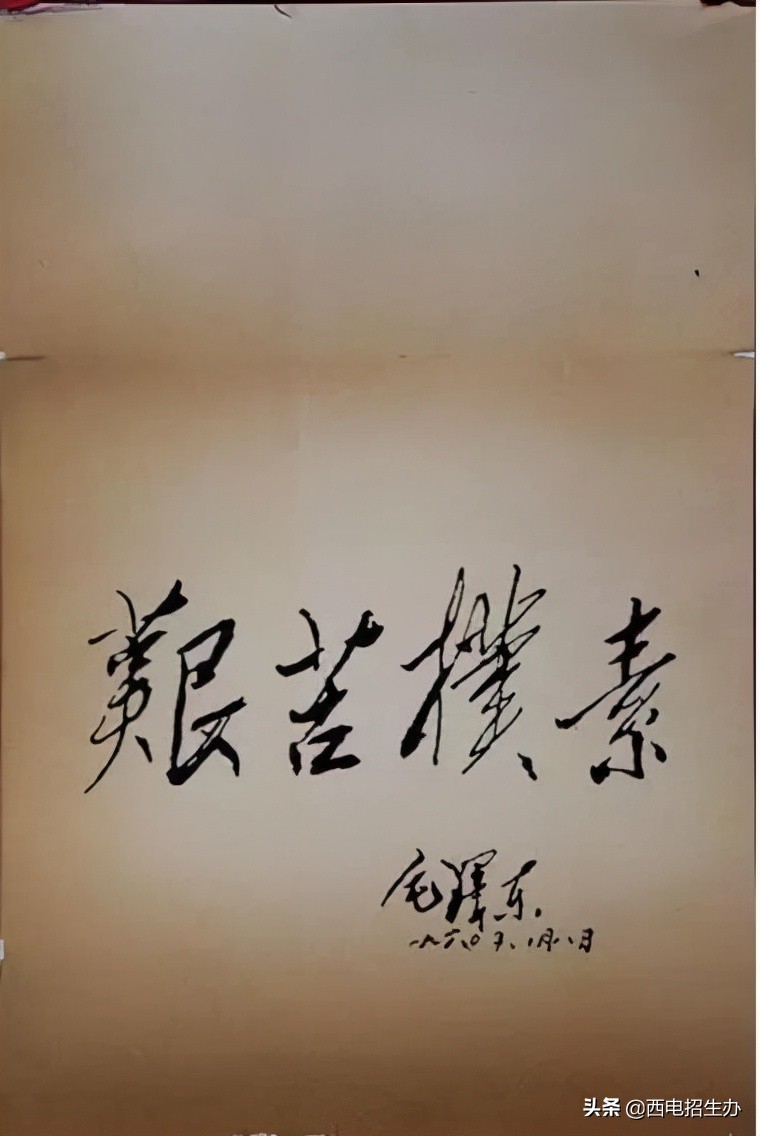 艱苦樸素
毛澤东
一九六〇年、一月八日
头条 @西电招生办